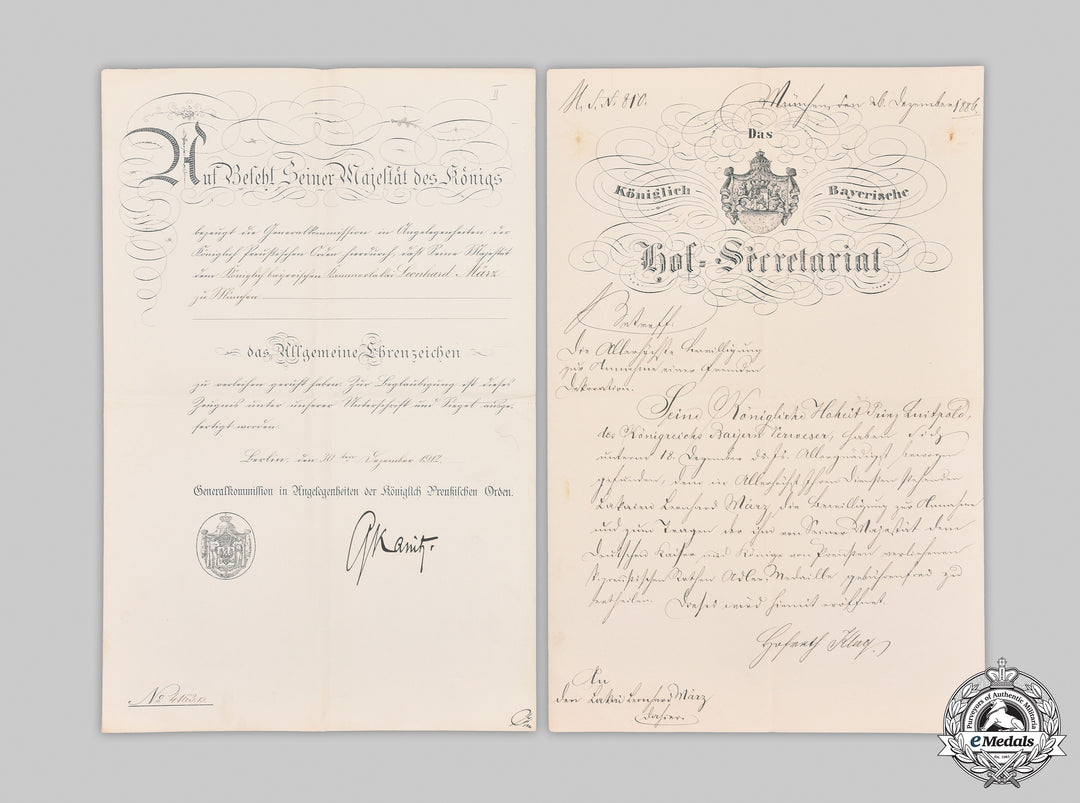 II
Auf Befehl Seiner Majestät des Königs
bezeugt die Generalkommission in Angelegenheiten der
Königlich Preußischen Orden hierdurch, daß Seine Majestät
dem Königlich bayerischen Kammerlakai Leonhard März
zu München
das Allgemeine Ehrenzeichen
zu verleihen geruht haben. Zur Beglaubigung ist dieses
Zeugnis unter unserer Unterschrift und Siegel ausge-
fertigt worden.
Berlin, den 30ten Dezember 1912.
Generalkommission in Angelegenheiten der Königlich Preußischen Orden.
Kanitz.
H. S. N. 810.
München, den 26. Dezember 1886.
Das
Königlich Bayerische
Hof-Secretariat
Betreff.
Die Allerhöchste Bewilligung
zur Annahme einer fremden
Dekoration.
Seine Königliche Hoheit Prinz Luitpold,
des Königreichs Bayern Verweser, haben Sich
unterm 18. Dezember ds. Js. Allergnädigst bewogen
gefunden, dem in Allerhöchst Ihren Diensten stehenden
Lakaien Leonhard März, die Bewilligung zur Annahme
und zum Tragen der ihm von Seiner Majestät dem
Deutschen Kaiser und Könige von Preußen verliehenen
k. preußischen Rothen Adler-Medaille gebührenfrei zu
ertheilen. Dieses wird hiemit eröffnet.
Hofrath Klug.
An
den Lakai Leonhard März
dahier.
Purveyors of Authentic Militaria
eMedals